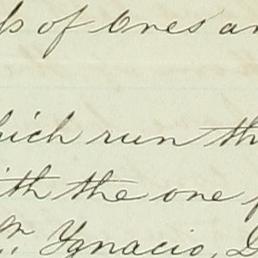 of Ores
which run th
with the one
Ygnacio,